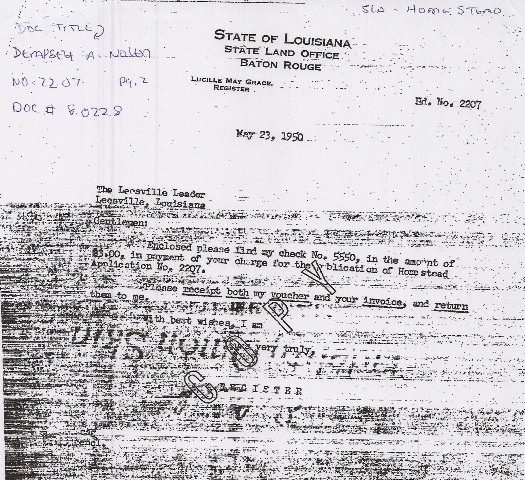 SLO - HOMESTEAD
DOC TITLE
DEMPSEY A. NOLEN
NO. 2207 pg. 2
DOC # 8.0228
STATE OF LOUISIANA
STATE LAND OFFICE
BATON ROUGE
LUCILLE MAY GRACE
REGISTER
Hd. No. 2207
May 23, 1950
The Leesville Leader
Leesville, Louisiana
Gentlemen:
Enclosed please find my check No. 5550, in the amount of
$3.00, in payment of your charge for the publication of Homestead
Application No. 2207.
Please receipt both my voucher and your invoice, and return
them to me.
With best wishes, I am
very truly,
REGISTER
COPY